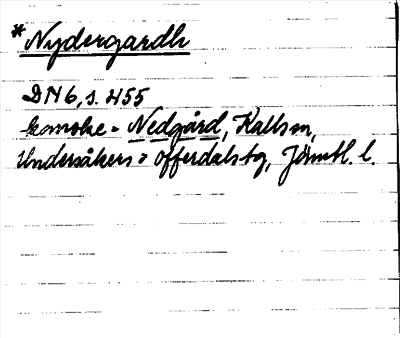 *Nydergardh
DN 6, s. 455
kanske = Nedgård, Kallsn,
Undersåkers o offerdals tg, Jämtl. l.